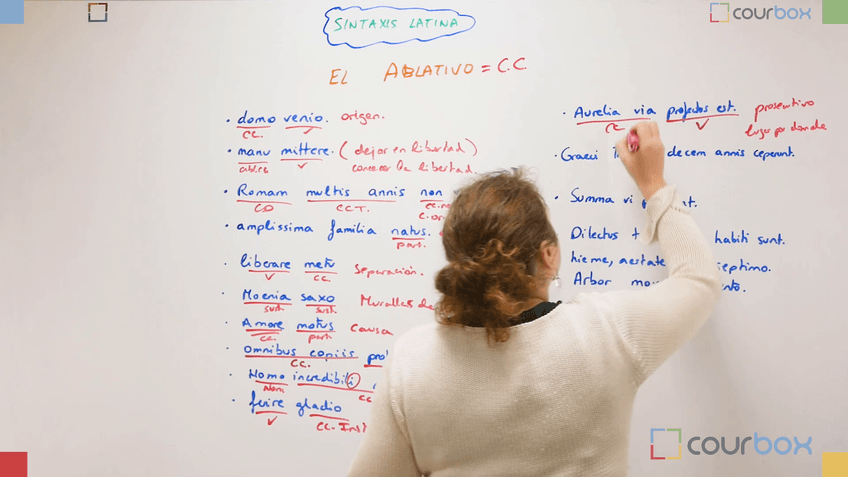 courbox
SINTAXIS LATINA
EL ABLATIVO = C.C.
· domo venio. origen.
CC. V
· manu mittere. (dejar en libertad)
V conceder la libertad.
· Romam multis annis non
CD CCT.
· amplissima familia natus.
part.
· liberare metu separación.
V CC.
· Moenia saxo Murallas de
sust. sust.
· Amore motus causa
CC. part.
· Omnibus copiis
CC.
· Homo incredibili
Nom. CC
· ferire gladio
V CC. Inst
· Aurelia via profectus est. prosecutivo
V lugar por donde
· Graeci decem annis ceperunt.
· Summa vi
Dilectus habiti sunt.
hieme, aestate
Arbor
courbox